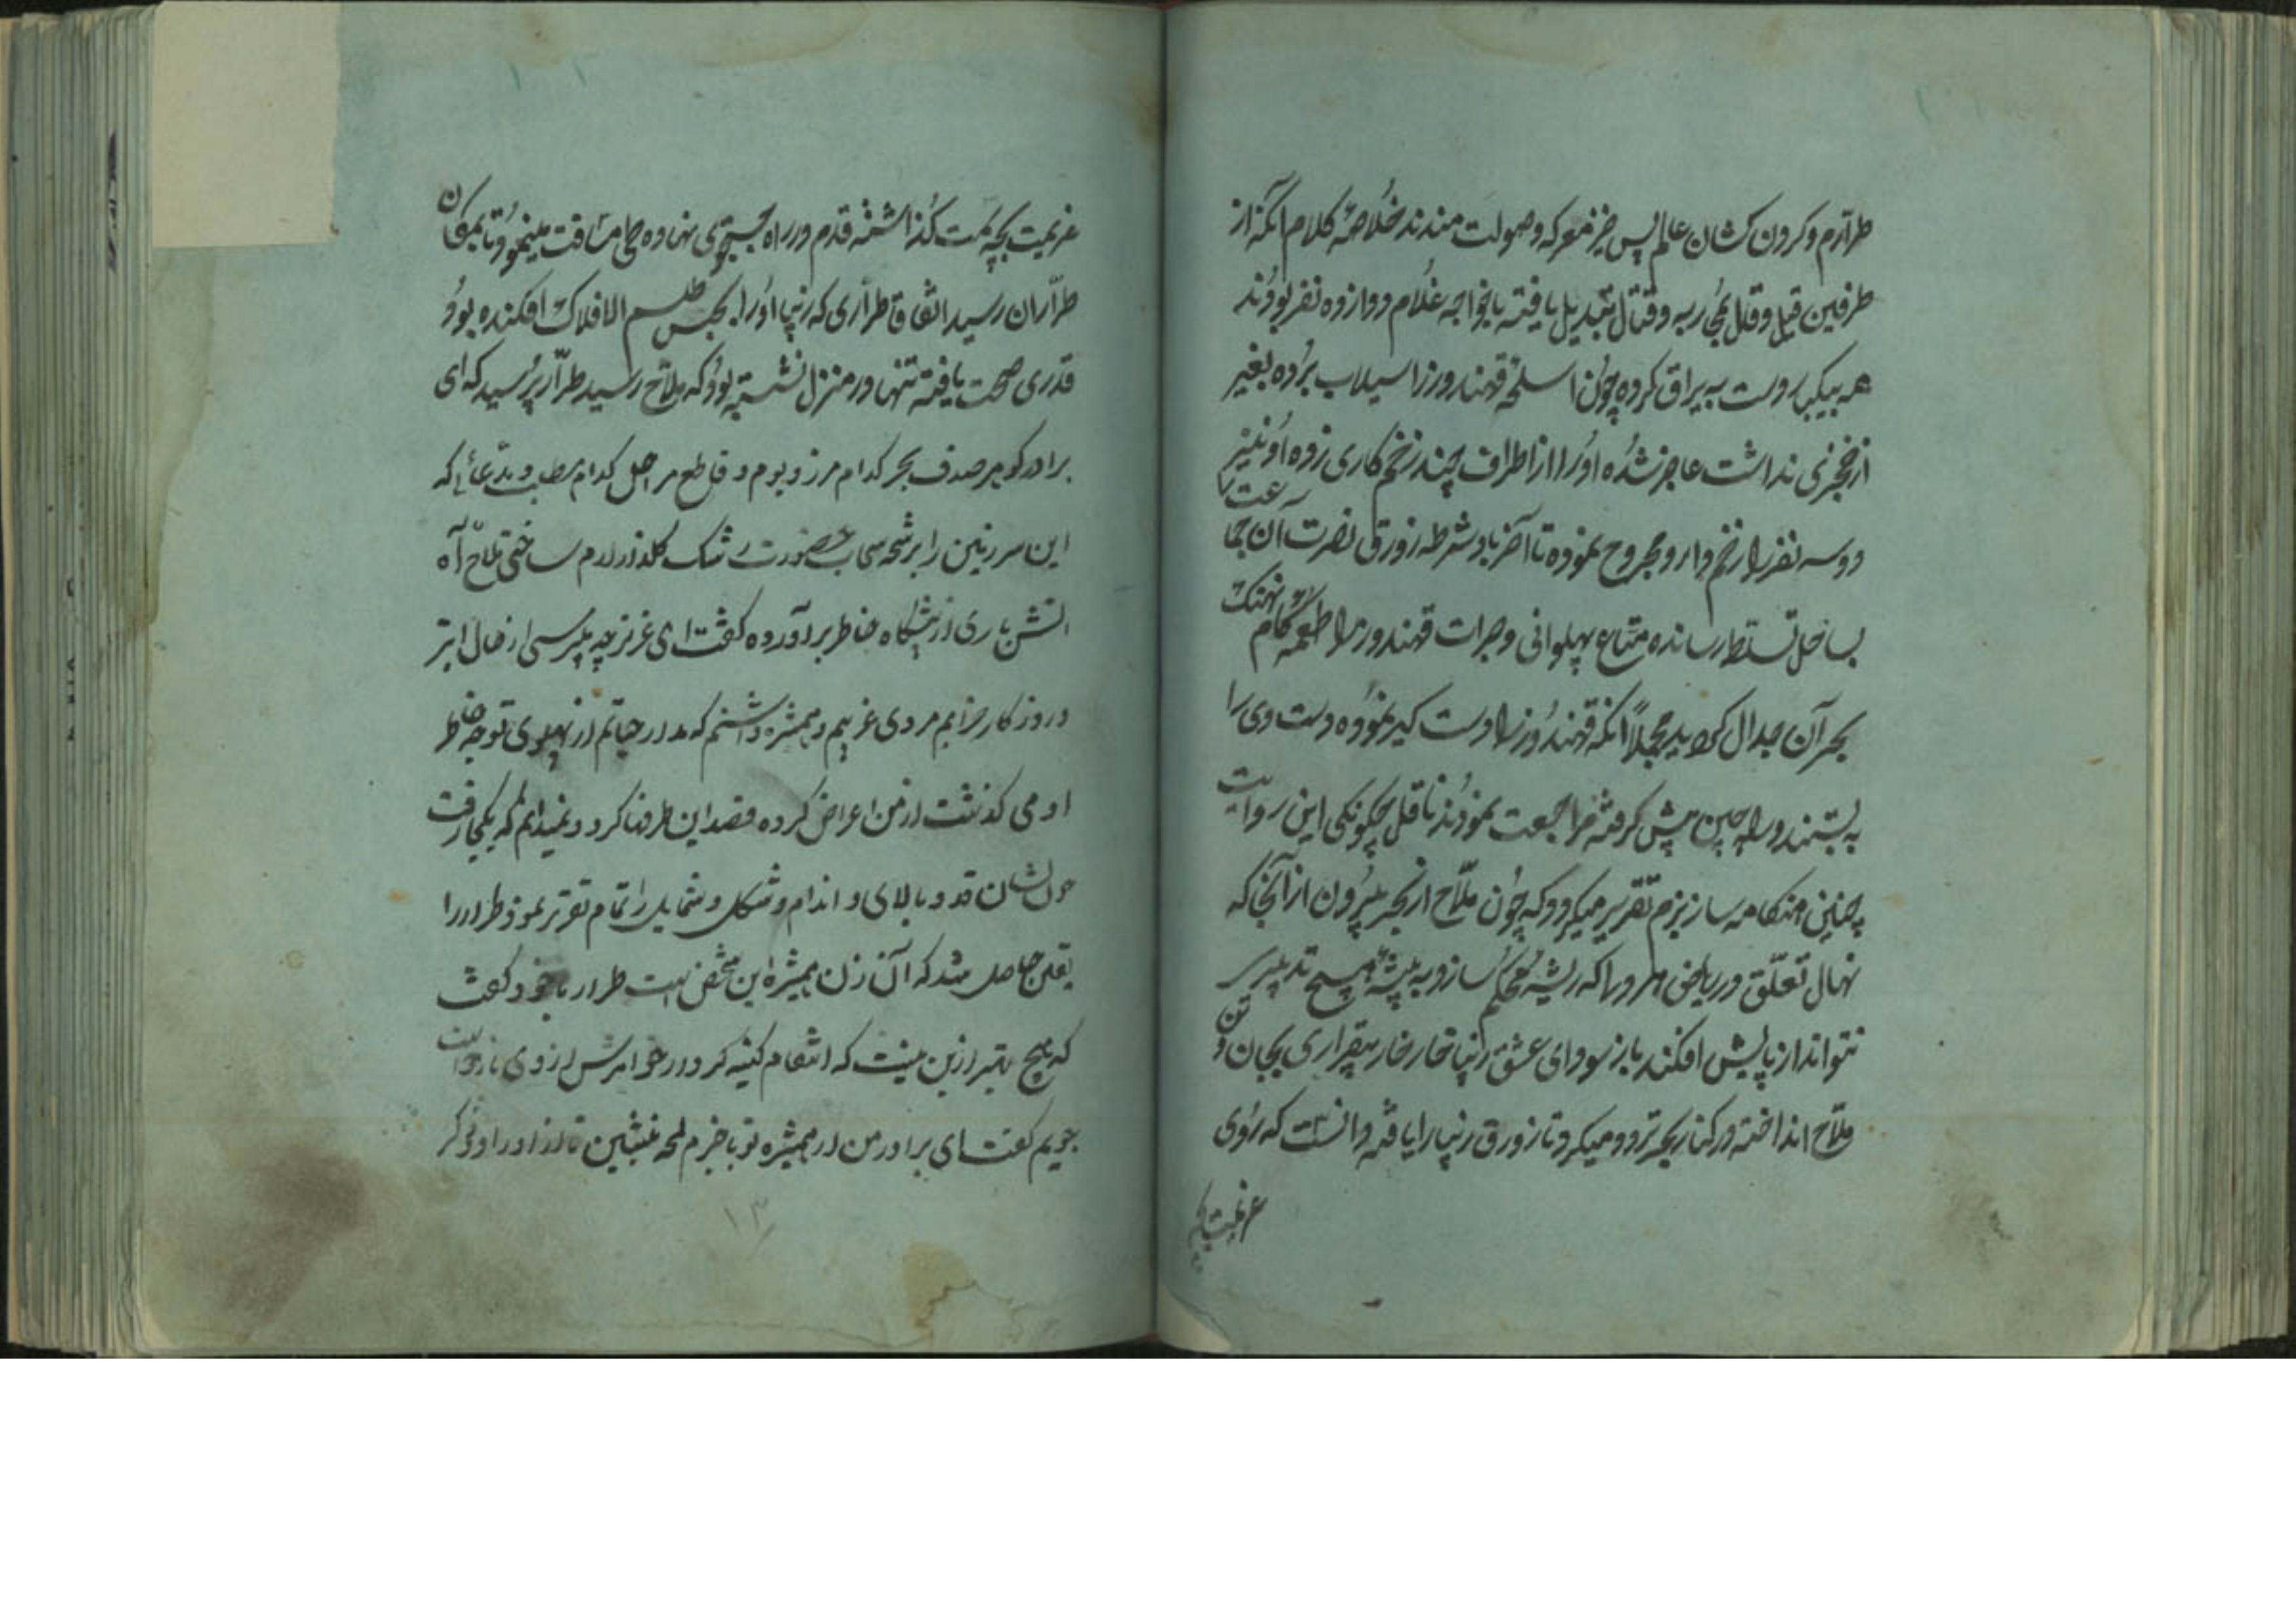 طرارم و گردن کشان عالم پس خیز معرکه و صولت منند خلاصهٔ کلام آنکه از
طرفین قیل و قال بمحاربه و قتال تبدیل یافته با خواجه غلام دوازده نفر بودند
همه بیکبار دست به یراق کرده چون اسلحه قهندورز را سیلاب برده بغیر
از خنجری نداشت عاجز شده او را از اطراف چند زخم کاری زده او نیز
دو سه نفر را زخم دار و مجروح نموده تا آخر باد شرطه زورق نصرت آن جماعت را
بساحل تسلط رسانده متاع پهلوانی و جرات قهندورز را طعمه کام نهنگ
بحر آن جدال گردانید مجملاً آنکه قهندورز را دستگیر نموده دست وی را
به بستند و راه چین پیش گرفته مراجعت نمودند ناقل چگونگی این روایت
چنین هنگامه ساز بزم تقریر میکردد که چون ملاح از بحر بیرون از آنجا که
نهال تعلق در ریاض هر دل که ریشه محکم سازد به تیشه هیچ تدبیر
نتواند از پایش افکند باز سودای عشق زنیبا خار خار بیقراری بجان و تن
ملاح انداخته در کنار بحر تردد میکرد تا زورق زنیبا را یافته دانست که روی
عزیمت بچه
عزیمت بچه سمت گذاشته قدم در راه جستجوی نهاده طی مسافت مینمود تا بمکان
طراران رسید اتفاقا طراری که زنیبا او را بحبس طلسم الافلاک افکنده بود
قدری صحت یافته تنها در منزل نشسته بود که ملاح رسید طرار پرسید که ای
برادر گوهر صدف بحر کدام مرز و بوم و قاطع مراحل کدام مطلب و مدعائی که
این سرزمین را برشحه سحاب حضورت رشک گلزار ارم ساختی ملاح آه
آتش باری از پیشگاه خاطر برآورده گفت ای عزیز چه میپرسی از حال ابتر
و روزگار خرابم مردی غریبم و همشیره داشتم که مدار حیاتم از پهلوی توجه خاطر
او می گذشت از من اعراض کرده قصد این طرفها کرد و نمیدانم که بکجا رفت
چون نشان قد و بالای و اندام و شکل و شمایل را تمام تقریر نمود طرار را
یقین حاصل شد که آن زن همشیره این شخص است طرار با خود گفت
که هیچ بهتر ازین نیست که انتقام کینه کردار خواهرش از وی بازخواست
جویم گفت ای برادر من از همشیره تو با خبرم لمحه بنشین تا از او راوی ذکر
۱۳